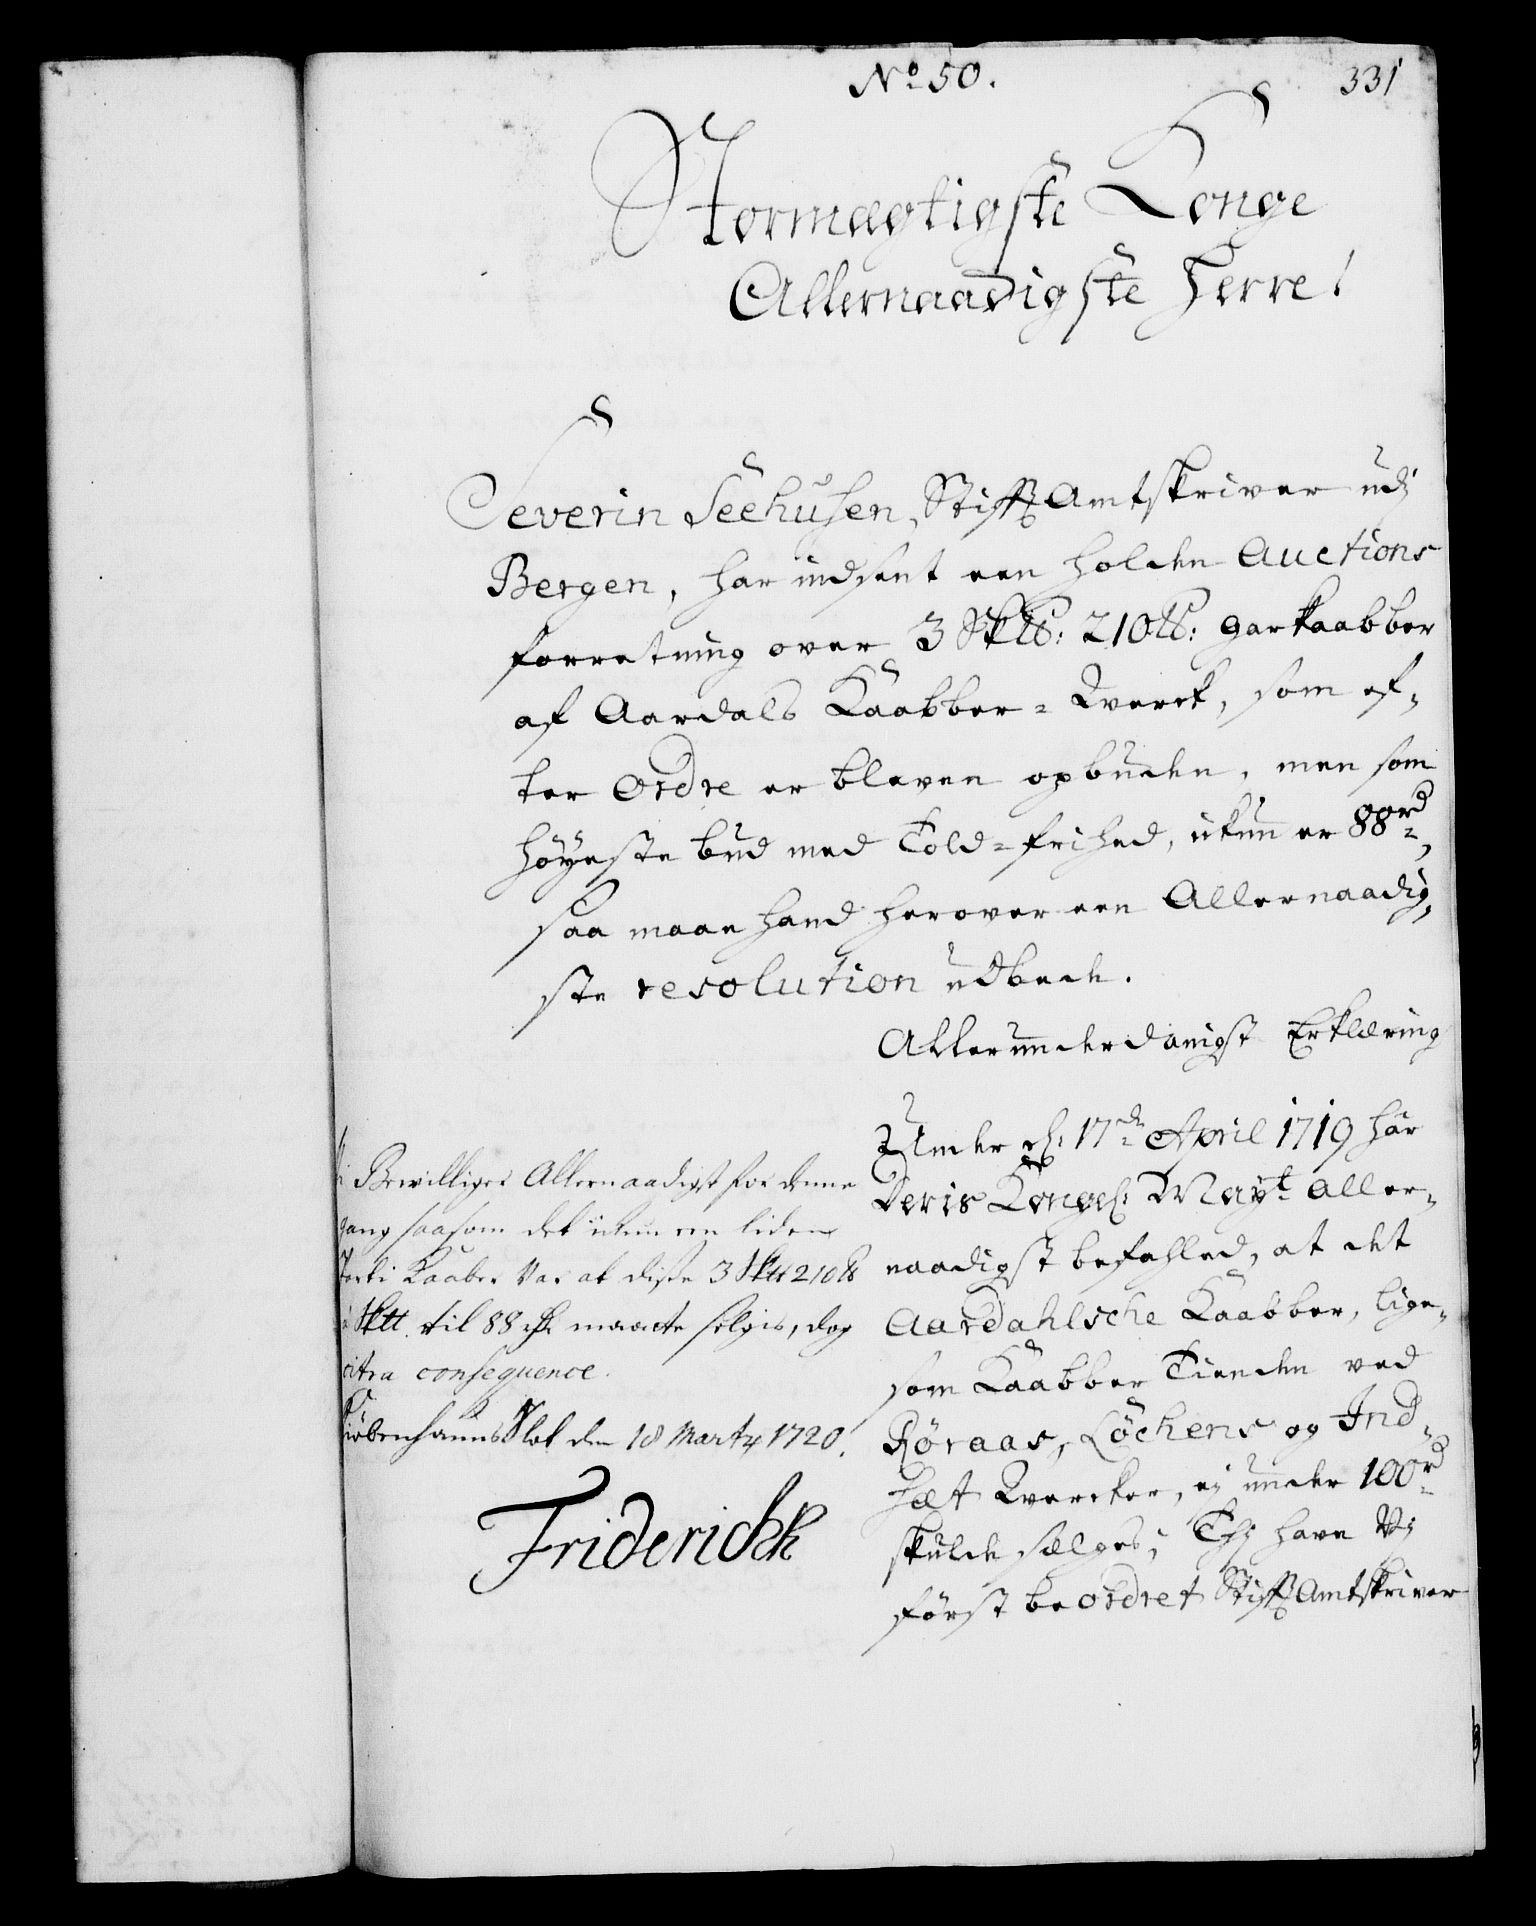 No 50.
331
Stormægtigste Konge
Allernaadigste Herre!
Severin Seehusen, Stiffts Amtskriver udj
Bergen, har indsent een holden Auctions
forretning over 3 Sk℔: 210 ℔: garkaabber
af Aardals Kaabber-Kverck, som ef-
ter Ordre er bleven opbuden, men som
høyeste bud med Told-frihed, ickun er 88 rd,
saa maae hand herover een Allernaadig-
ste resolution udbede.
Allerunderdanigst Erklæring
Under 17de April 1719 har
Deris Kongel: Mayt aller-
naadigst befahled, at det
Aardahlsche Kaabber, lige-
som Kaabber Tienden ved
Røraas, Løchens og Ind-
hæt Kvercker, ej under 100 rd
skulde sælges; Thj have Vj
først beordret Stiffts Amtskriver
Vi Bewilliger Allernaadigst for denne
gang saasom det ickun een liden
Parti Kaaber Var at disse 3 Sktt 210 ℔
a Sktt. til 88 rdr maatte selgis, dog
citra consequence.
Kiøbenhauns Slot den 18 Marty 1720.
Friderich R